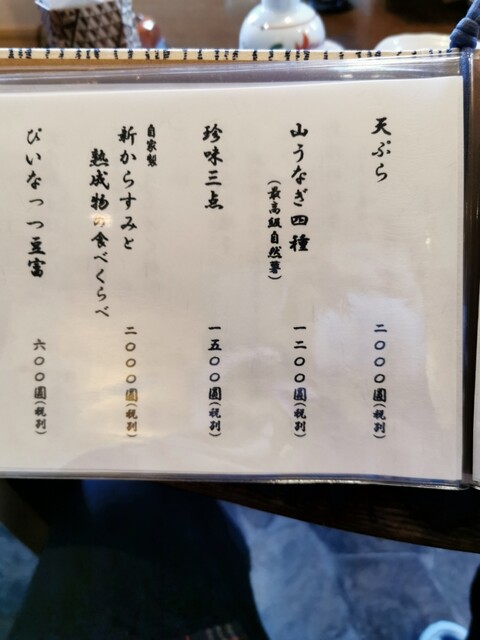 天ぷら
二〇〇〇圓(税別)
山うなぎ四種
(最高級自然薯)
一二〇〇圓(税別)
珍味三点
一五〇〇圓(税別)
自家製
新からすみと
熟成物の食べくらべ
二〇〇〇圓(税別)
ぴいなっつ豆富
六〇〇圓(税別)